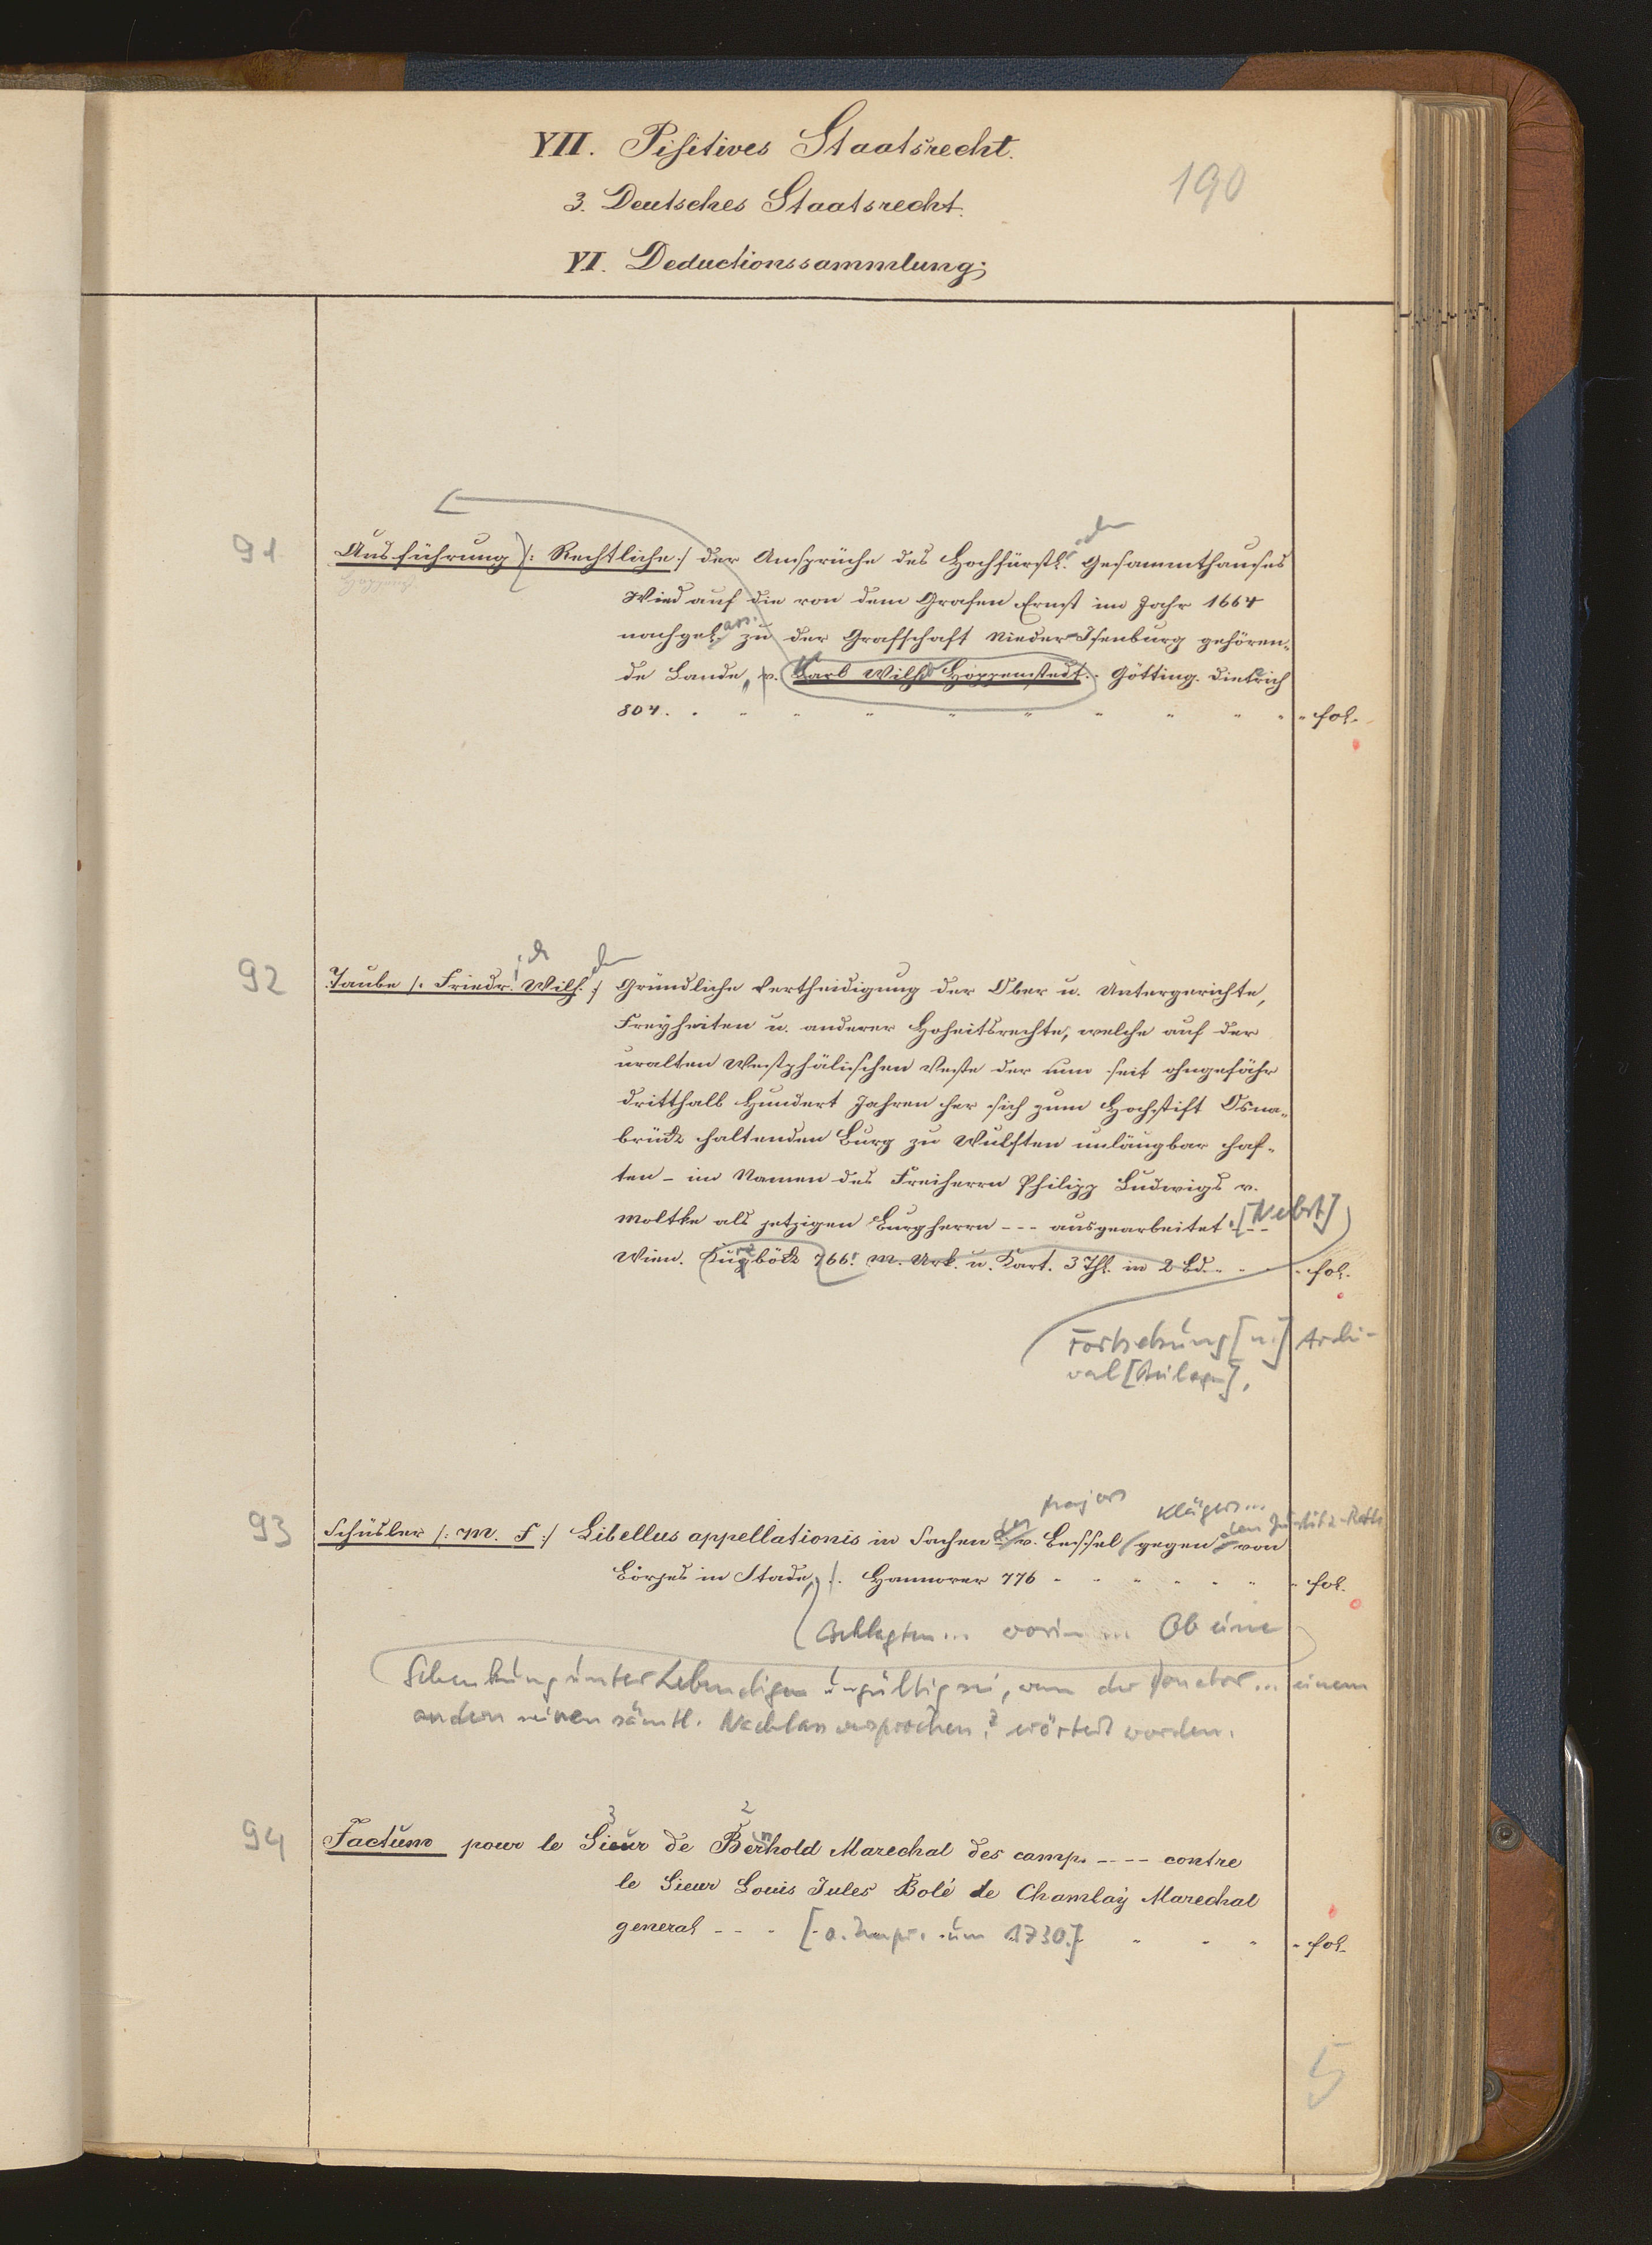 VII. Pisitives Staatsrecht.
190
3. Deutsches Staatsrecht.
VI. Deductionssammlung;
91 Ausführung /: Rechtliche :/ der Ansprüche des Hochfürstl. Gesammthauses
Wied auf die von dem Grafen Ernst im Jahr 1664
nachgel. zu der Grafschaft Nieder-Isenburg gehören-
de Lande, v. Karl Wilh. Hoppenstedt. Götting. Dietrich
804. fol.
92 Taube /: Friedr. Wilh. :/ Gründliche Vertheidigung der Ober u. Untergerichte,
Freyheiten u. anderer Hoheitsrechte, welche auf der
uralten Westphälischen Veste der nun seit ohngefähr
dritthalb Hundert Jahren her sich zum Hochstift Osna-
brück haltenden Burg zu Wulften unläugbar haf-
ten - im Namen des Freiherrn Philipp Ludwigs v.
Moltke als jetzigen Burgherrn --- ausgearbeitet. [Nebst]
Wien. 766. m. Urk. u. Kart. 3 Thl. in 2 Bd. fol.
Fortsetzung [u.] Archi-
val [Beilagen],
Majors Klägers... den Justitz-Rath
93 Schüsler /: M. F :/ Libellus appellationis in Sachen des v. Bessel gegen von
Börjes in Stade, Hannover 776 fol.
Beklagten... worin ... Ob eine
Schenkung unter Lebendigen ungültig sei, wenn der Donator... einem
andern seinen sämtl. Nachlass versprochen? erörtert worden.
3 2
94 Factum pour le Sieur de Berhold Marechal des camp. ---- contre
le Sieur Louis Jules Bolé de Chamlay Marechal
general - - - [o. Impr. um 1730.] fol.
5